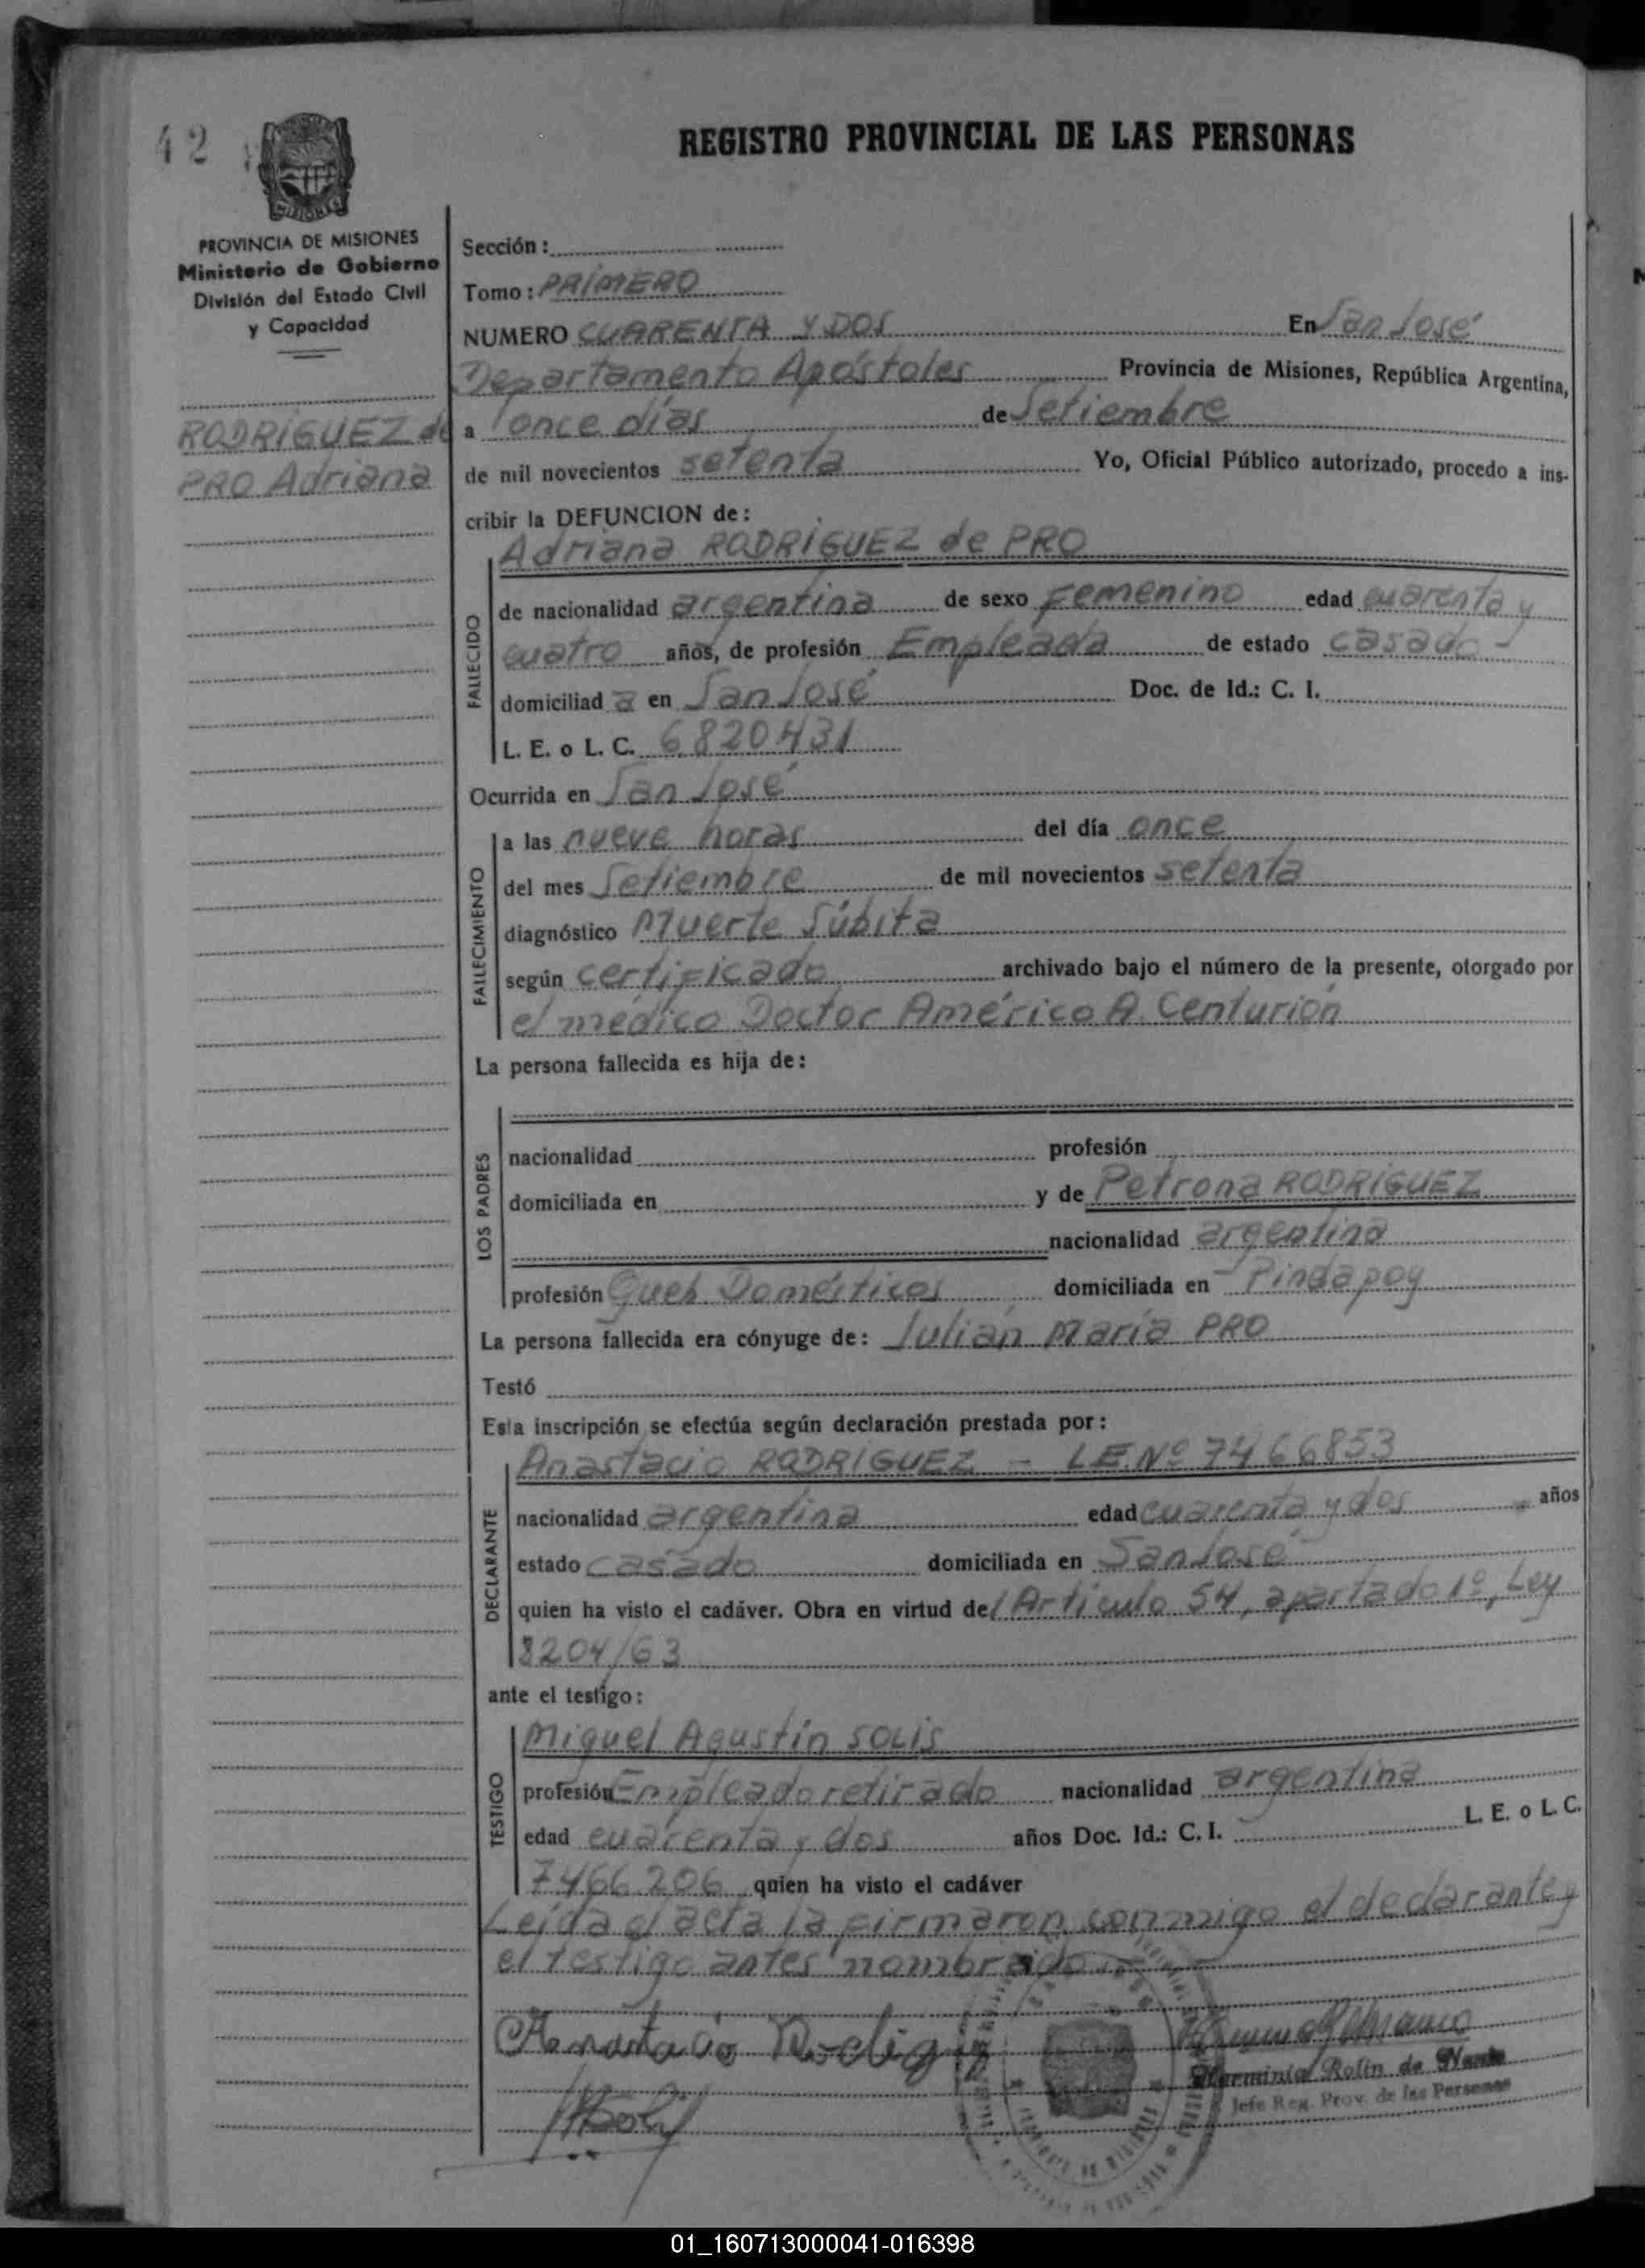 42
REGISTRO PROVINCIAL DE LAS PERSONAS
MISIONES
PROVINCIA DE MISIONES
Ministerio de Gobierno
División del Estado Civil
y Capacidad
RODRIGUEZ de
PRO Adriana
Sección:
Tomo: PRIMERO
NUMERO CUARENTA Y DOS En San José
Departamento Apóstoles Provincia de Misiones, República Argentina,
a once días de Setiembre
de mil novecientos setenta Yo, Oficial Público autorizado, procedo a ins-
cribir la DEFUNCION de:
Adriana RODRIGUEZ de PRO
FALLECIDO
de nacionalidad argentina de sexo Femenino edad cuarenta y
cuatro años, de profesión Empleada de estado casado -
domiciliad a en San José Doc. de Id.: C. I.
L. E. o L. C. 6820431
Ocurrida en San José
FALLECIMIENTO
a las nueve horas del día once
del mes Setiembre de mil novecientos setenta
diagnóstico Muerte Súbita
según certificado archivado bajo el número de la presente, otorgado por
el médico Doctor Américo A. Centurión
La persona fallecida es hija de:
LOS PADRES
nacionalidad profesión
domiciliada en y de Petrona RODRIGUEZ
nacionalidad argentina
profesión Queh. Domésticos domiciliada en Pindapoy
La persona fallecida era cónyuge de: Julián María PRO
Testó
Esta inscripción se efectúa según declaración prestada por:
Anastacio RODRIGUEZ - LE.Nº 7466853
DECLARANTE
nacionalidad argentina edad cuarenta y dos años
estado casado domiciliada en San José
quien ha visto el cadáver. Obra en virtud del Artículo 54, apartado 1º, Ley
8204/63
ante el testigo:
Miguel Agustín SOLIS
TESTIGO
profesión Empleado retirado nacionalidad argentina
edad cuarenta y dos años Doc. Id.: C. I. L. E. o L. C.
7466206 quien ha visto el cadáver
Leída el acta la firmaron conmigo el declarante y
el testigo antes nombrado
Herminia Rolin de
Jefe Reg. Prov. de las Personas
01_160713000041-016398